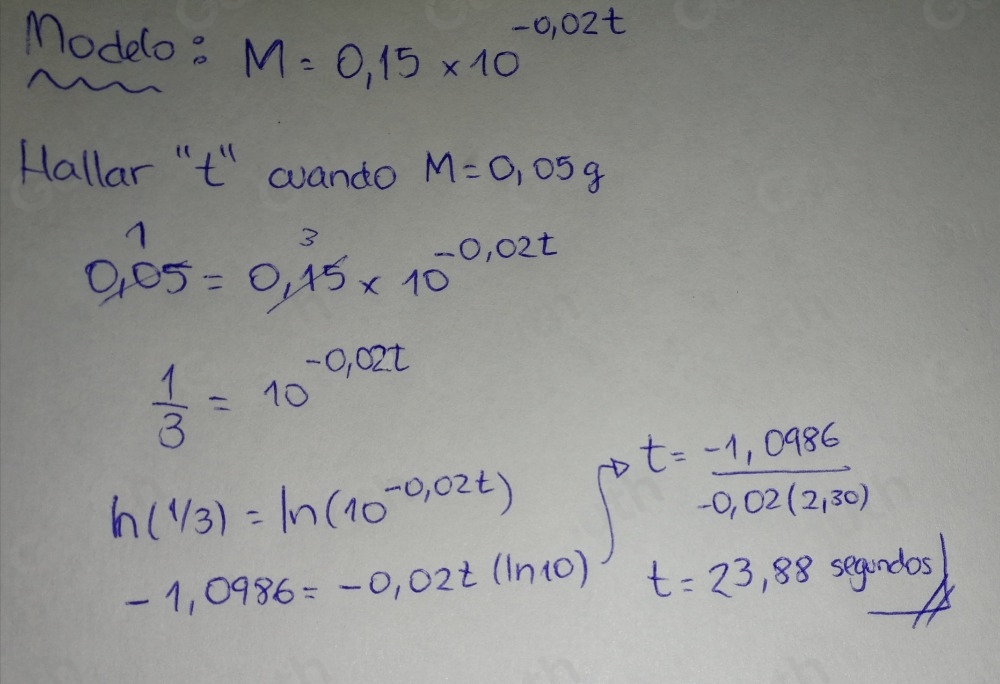 Modelo: M = 0,15 × 10^-0,02t
Hallar "t" cuando M = 0,05g
1 3
0,05 = 0,15 × 10^-0,02t
1/3 = 10^-0,02t
ln(1/3) = ln(10^-0,02t)
-1,0986 = -0,02t (ln10)
t = -1,0986 / -0,02(2,30)
t = 23,88 segundos